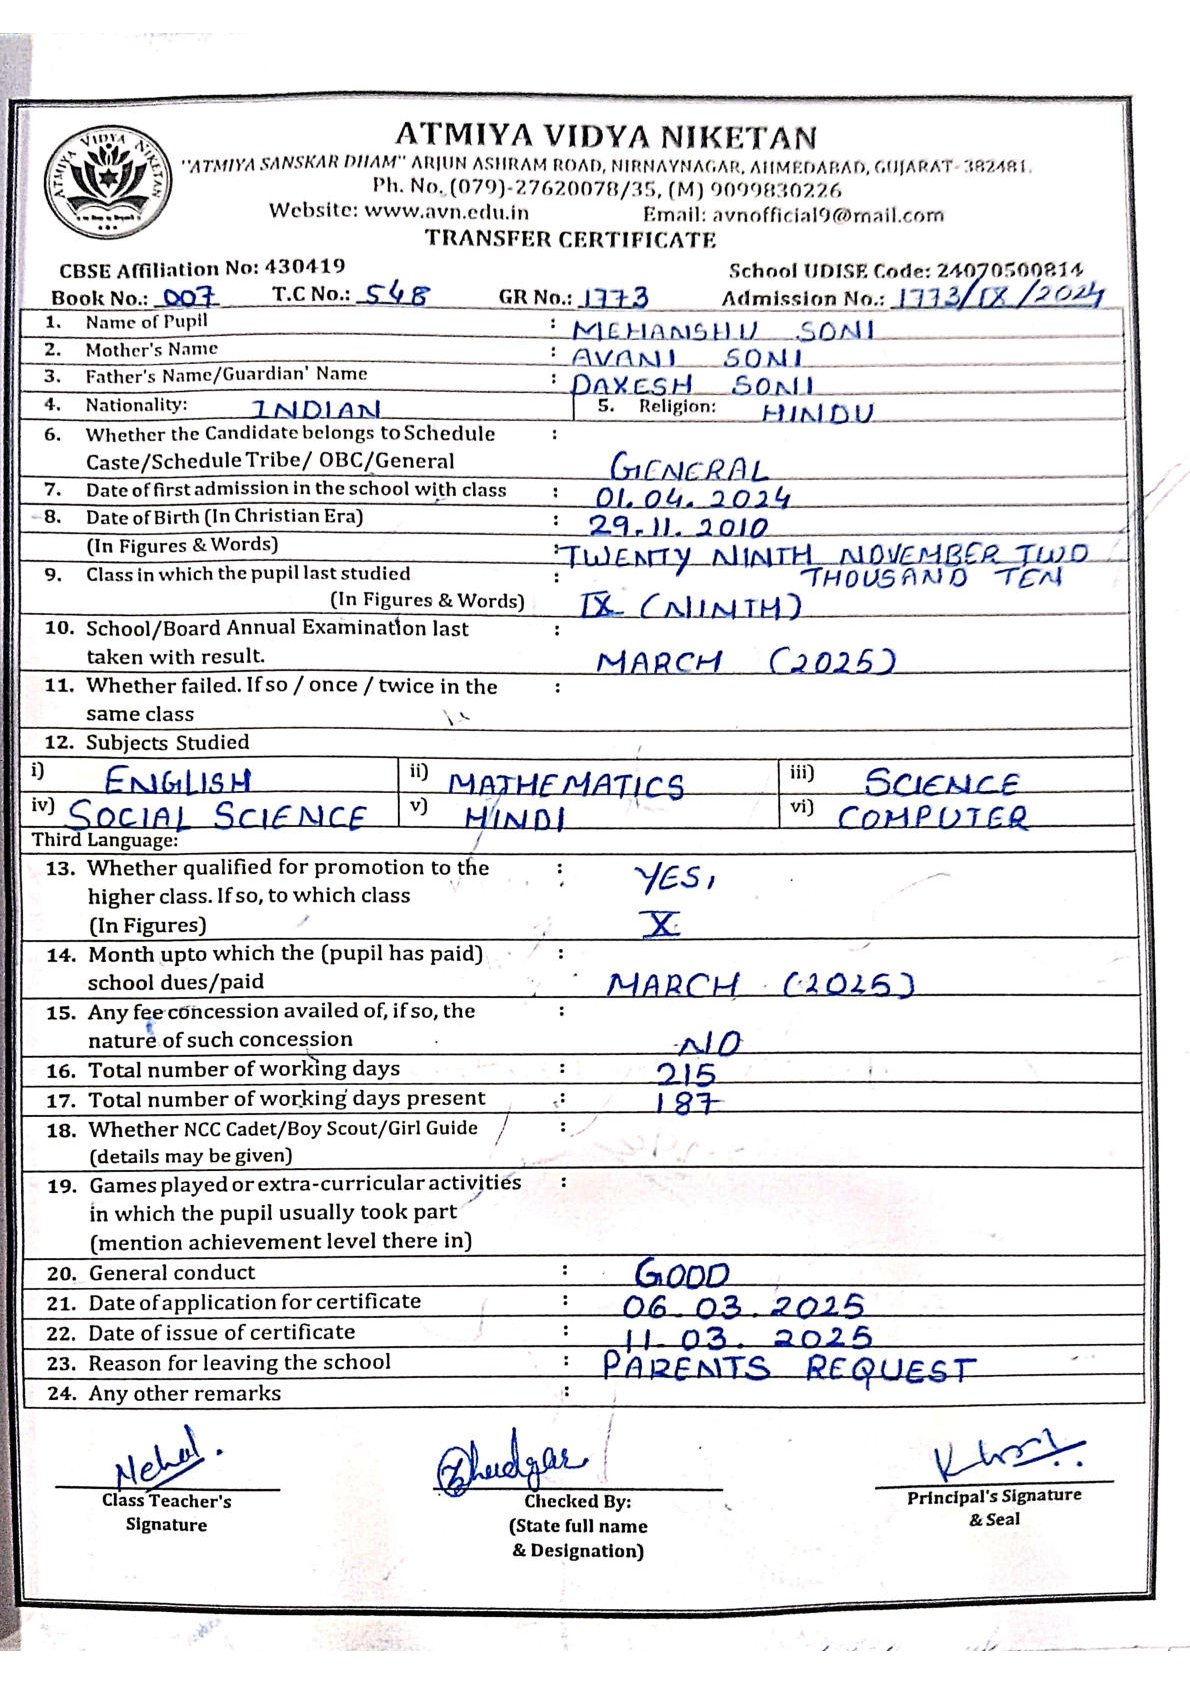 ATMIYA VIDYA NIKETAN
ATMIYA VIDYA NIKETAN
"ATMIYA SANSKAR DHAM" ARJUN ASHRAM ROAD, NIRNAYNAGAR, AHMEDABAD, GUJARAT-382481.
Ph. No. (079)-27620078/35, (M) 9099830226
Website: www.avn.edu.in Email: avnofficial9@mail.com
TRANSFER CERTIFICATE
CBSE Affiliation No: 430419 School UDISE Code: 24070500814
Book No.: 007 T.C No.: 548 GR No.: 1773 Admission No.: 1773/IX/2024
1. Name of Pupil : MEHANSHU SONI
2. Mother's Name : AVANI SONI
3. Father's Name/Guardian' Name : DAXESH SONI
4. Nationality: INDIAN 5. Religion: HINDU
6. Whether the Candidate belongs to Schedule :
Caste/Schedule Tribe/ OBC/General GENERAL
7. Date of first admission in the school with class : 01.04.2024
8. Date of Birth (In Christian Era) : 29.11.2010
(In Figures & Words) : TWENTY NINTH NOVEMBER TWO
9. Class in which the pupil last studied : THOUSAND TEN
(In Figures & Words) IX (NINTH)
10. School/Board Annual Examination last :
taken with result. MARCH (2025)
11. Whether failed. If so / once / twice in the :
same class
12. Subjects Studied
i) ENGLISH ii) MATHEMATICS iii) SCIENCE
iv) SOCIAL SCIENCE v) HINDI vi) COMPUTER
Third Language:
13. Whether qualified for promotion to the : YES,
higher class. If so, to which class
(In Figures) X
14. Month upto which the (pupil has paid) :
school dues/paid MARCH (2025)
15. Any fee concession availed of, if so, the :
nature of such concession NO
16. Total number of working days : 215
17. Total number of working days present : 187
18. Whether NCC Cadet/Boy Scout/Girl Guide :
(details may be given)
19. Games played or extra-curricular activities :
in which the pupil usually took part
(mention achievement level there in)
20. General conduct : GOOD
21. Date of application for certificate : 06.03.2025
22. Date of issue of certificate : 11.03.2025
23. Reason for leaving the school : PARENTS REQUEST
24. Any other remarks :
Nehal.
Class Teacher's Checked By: Principal's Signature
Signature (State full name & Seal
& Designation)